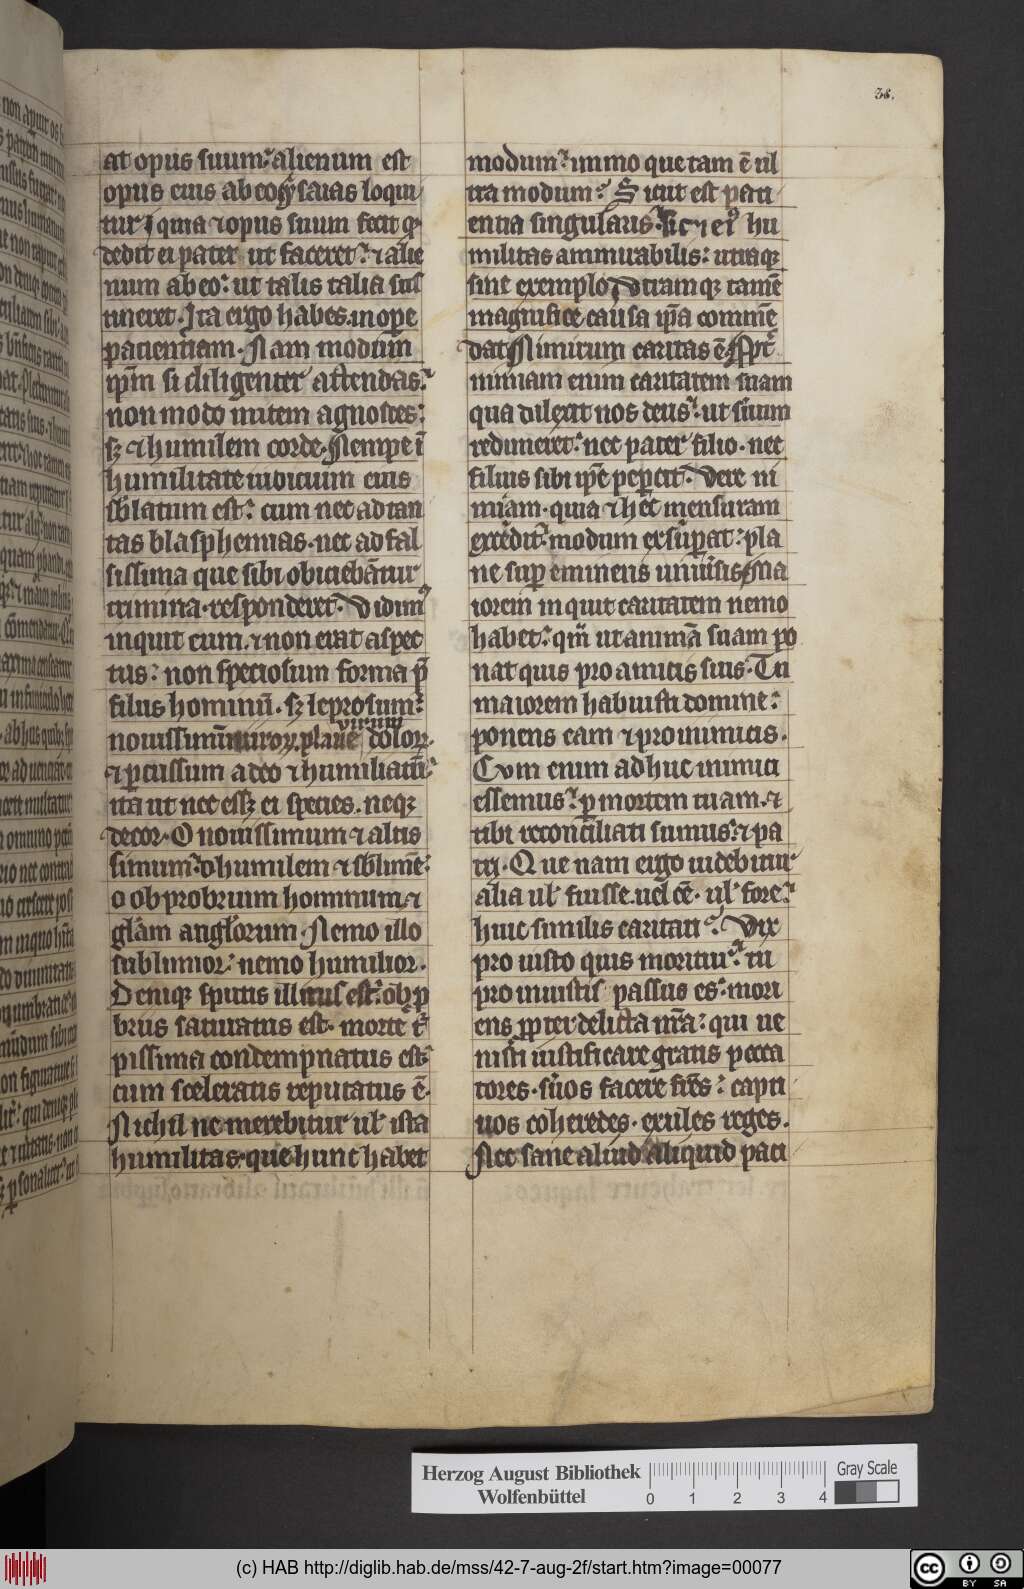 38.
at opus suum: alienum est
opus eius ab eo. ysaias loqui
tur. quia ⁊ opus suum fecit qd
dedit ei pater ut faceret: ⁊ alie
num ab eo: ut talis talia sus
tineret. Ita ergo habes in ope
pacientiam. Nam modum
ip̄m si diligenter attendas:
non modo mitem agnosces:
sꝫ ⁊ humilem corde. Nempe ī
humilitate iudicium eius
sb̄latum est: cum nec ad tan
tas blasphemias. nec ad fal
sissima que sibi obiciebātur
crimina. responderet. Vidimꝰ
inquit eum. ⁊ non erat aspec
tus: non speciosum forma p̄
filiis hominū. sꝫ leprosum:
virum
nouissimū uiroꝝ. plane doloꝝ.
⁊ ꝑcussum a deo ⁊ humiliatū:
ita ut nec essꝫ ei species. neqꝫ
decor. O nouissimum ⁊ altis
simum: o humilem ⁊ sb̄limē:
o obprobrium hominum ⁊
gl̄am angl̓orum. Nemo illo
sublimior: nemo humilior.
Deniqꝫ sputis illitus est: ob̄p
briis saturatus est. morte t̄
pissima condempnatus est:
cum sceleratis reputatus ē.
Nichil ne merebitur ul̓ ista
humilitas. que hunc habet
modum: immo que tam ē ul
tra modum? Sicut est paci
entia singularis: sic ⁊ eiꝰ hu
militas ammirabilis: utraqꝫ
sine exemplo. Vtramqꝫ tamē
magnifice causa ip̄a commē
dat. Nimirum caritas ē. Ppt̄
nimiam enim caritatem suam
qua dilexit nos deus: ut s̓uum
redimeret: nec pater filio. nec
filius sibi ip̄e peꝑcit. Vere ni
miam. quia ⁊ hec mensuram
excedit: modum exsuꝑat: pla
ne suꝑ eminens uniu̓sis. Ma
iorem inquit caritatem nemo
habet: qm̄ ut animā suam po
nat quis pro amicis suis. Tu
maiorem habuisti domine:
ponens eam ⁊ pro inimicis.
Cvm enim adhuc inimici
essemus: ꝑ mortem tuam. ⁊
tibi reconciliati sumus: ⁊ pa
tri. Que nam ergo uidebitur
alia ul̓ fuisse. uel eē. ul̓ fore:
huic similis caritati? Vix
pro iusto quis moritur: tu
pro iniustis passus es: mori
ens ꝓpter delicta nr̄a: qui ue
nisti iustificare gratis pecca
tores. s̓uos facere fr̄es: capti
uos coheredes. exules reges.
Nec sane aliud aliquid paci
Herzog August Bibliothek
Wolfenbüttel
0 1 2 3 4
Gray Scale
(c) HAB http://diglib.hab.de/mss/42-7-aug-2f/start.htm?image=00077
cc BY SA